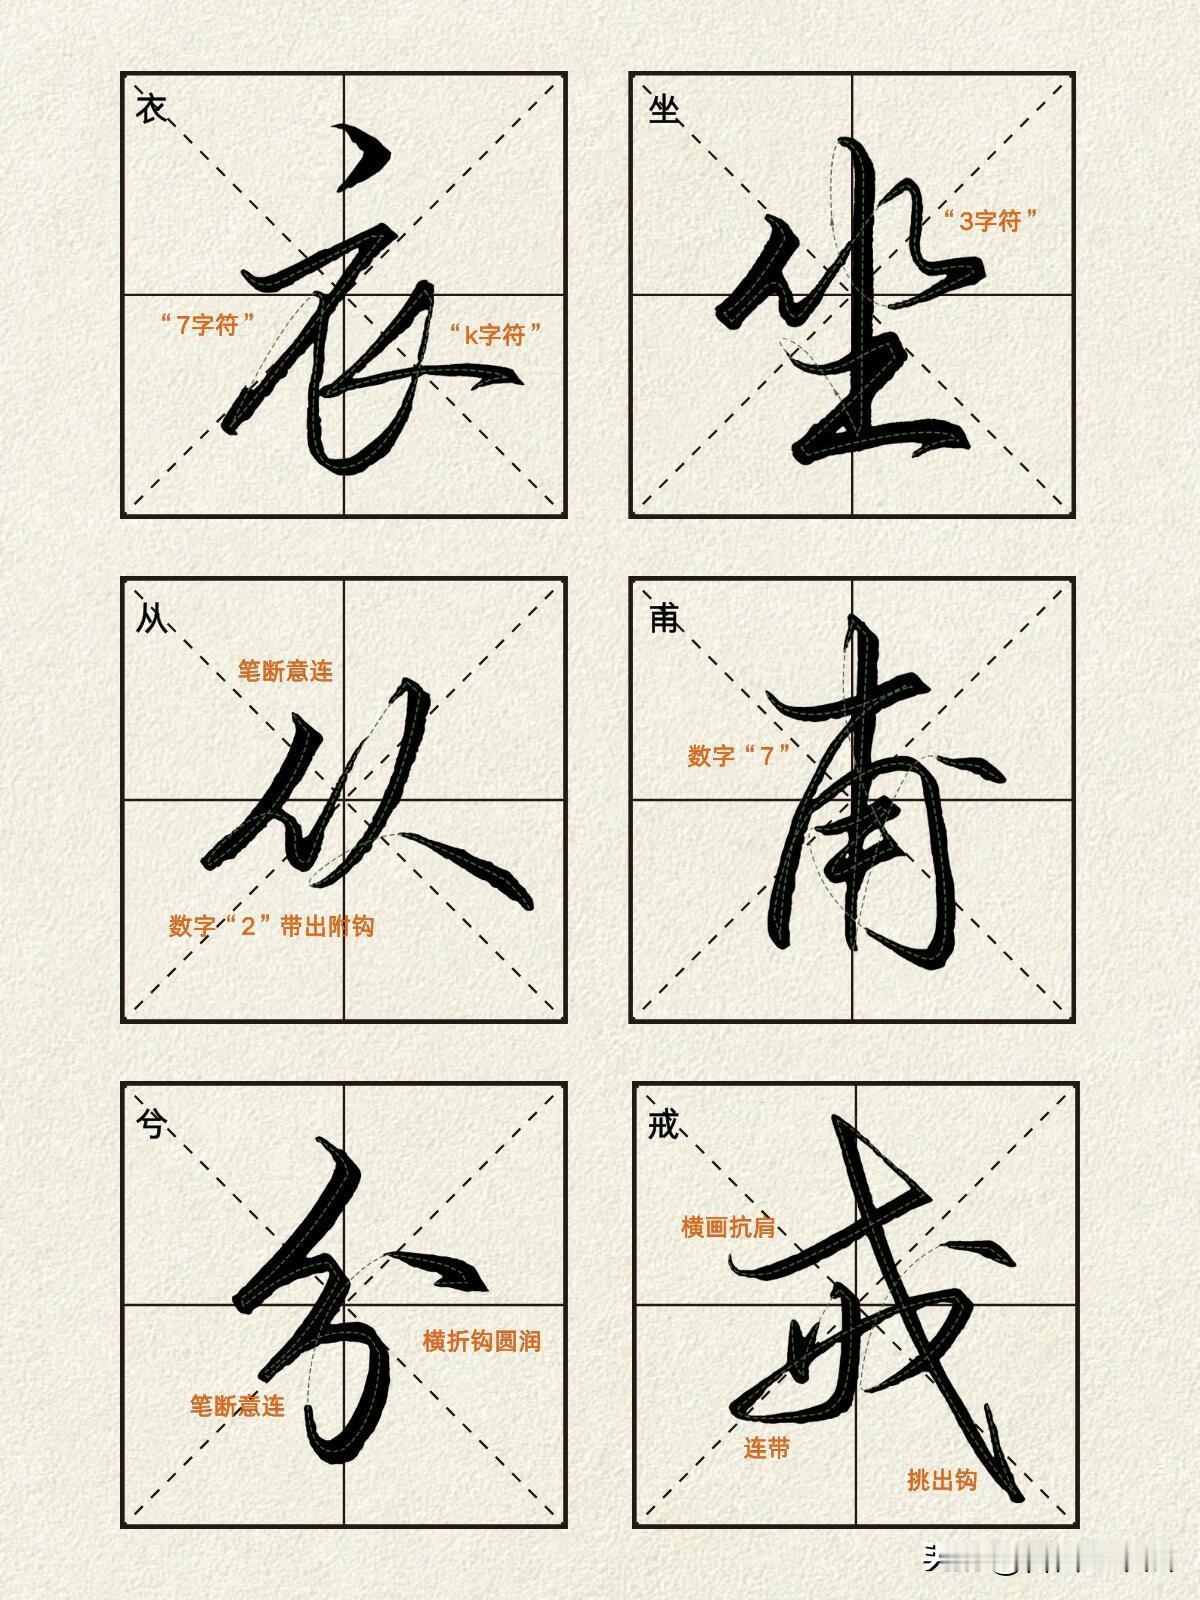 衣
衣
“7字符”
“k字符”
坐
坐
“3字符”
从
笔断意连
从
数字“2”带出附钩
甫
甫
数字“7”
兮
兮
横折钩圆润
笔断意连
戒
戒
横画抗肩
连带
挑出钩